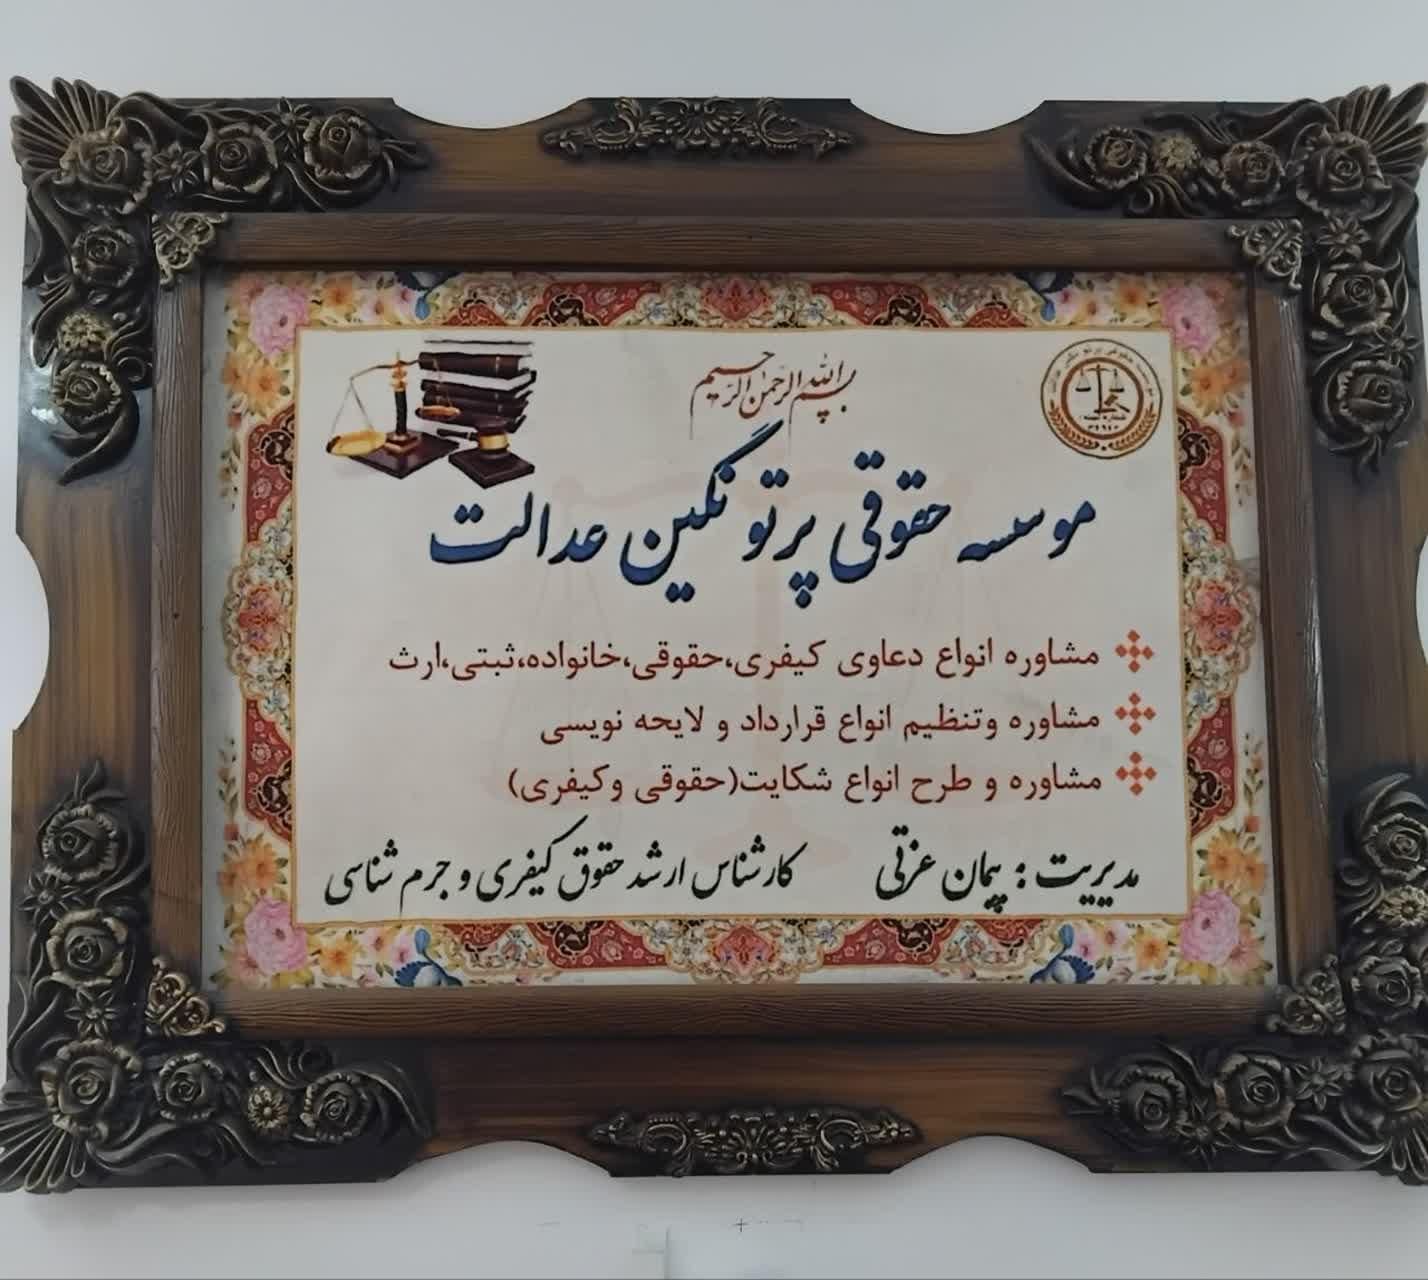 بسم الله الرحمن الرحیم
موسسه حقوقی پرتو نگین عدالت
مشاوره انواع دعاوی کیفری،حقوقی،خانواده،ثبتی،ارث
مشاوره وتنظیم انواع قرارداد و لایحه نویسی
مشاوره و طرح انواع شکایت(حقوقی وکیفری)
مدیریت : پیمان عزتی کارشناس ارشد حقوق کیفری و جرم شناسی